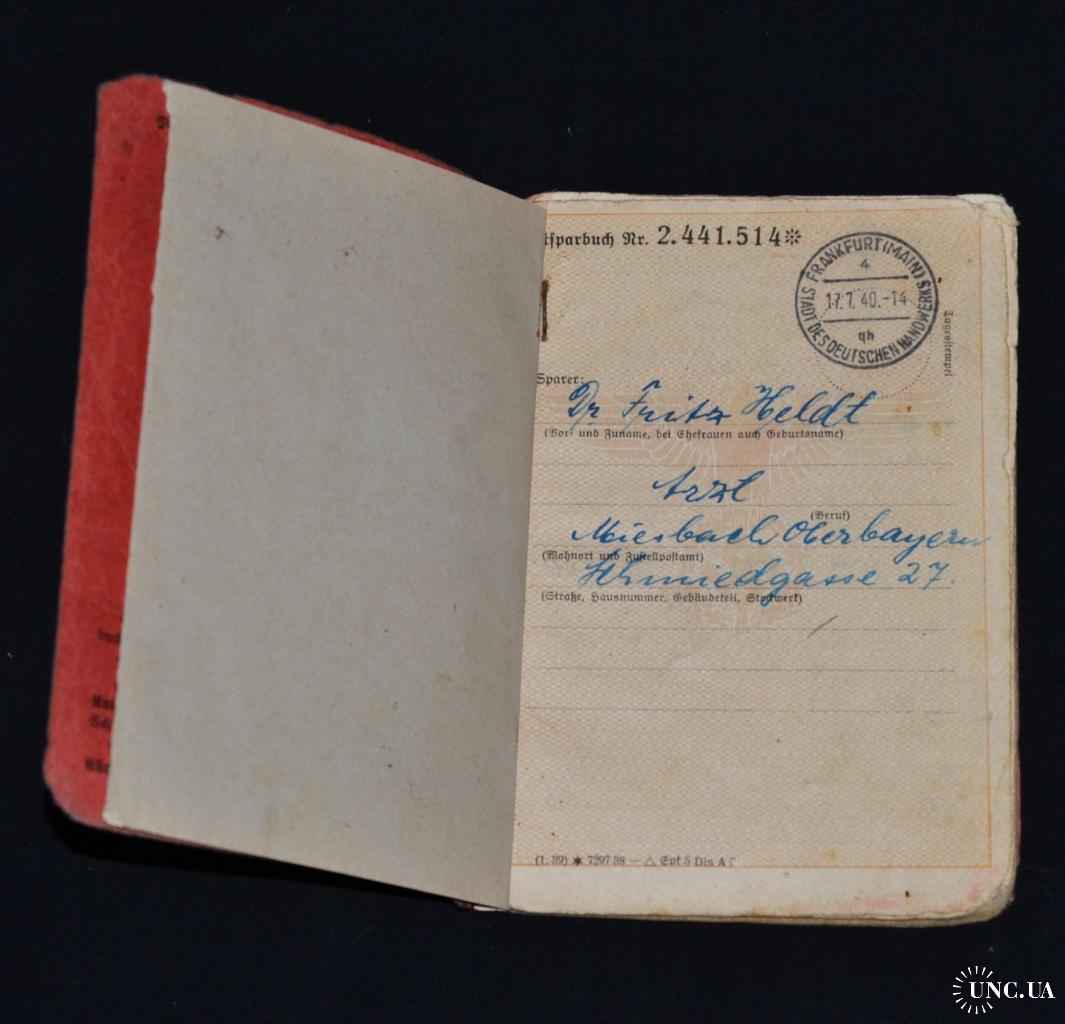 tsparbuch Nr. 2.441.514*
FRANKFURT (MAIN)
4
17.7.40.-14
gh
STADT DES DEUTSCHEN HANDWERKS
Tagesstempel
Sparer:
Dr Fritz Heldt
(Vor- und Zuname, bei Ehefrauen auch Geburtsname)
Arzt
(Beruf)
Miesbach Oberbayern
(Wohnort und Zustellpostamt)
Schmiedgasse 27.
(Straße, Hausnummer, Gebäudeteil, Stockwerk)
(1. 39) ✱ 729738 — △ Spk 5 Din A
UNC.UA